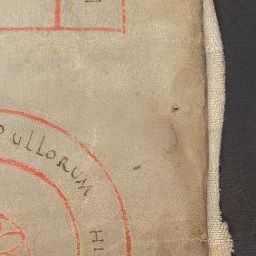 ullorum
HI